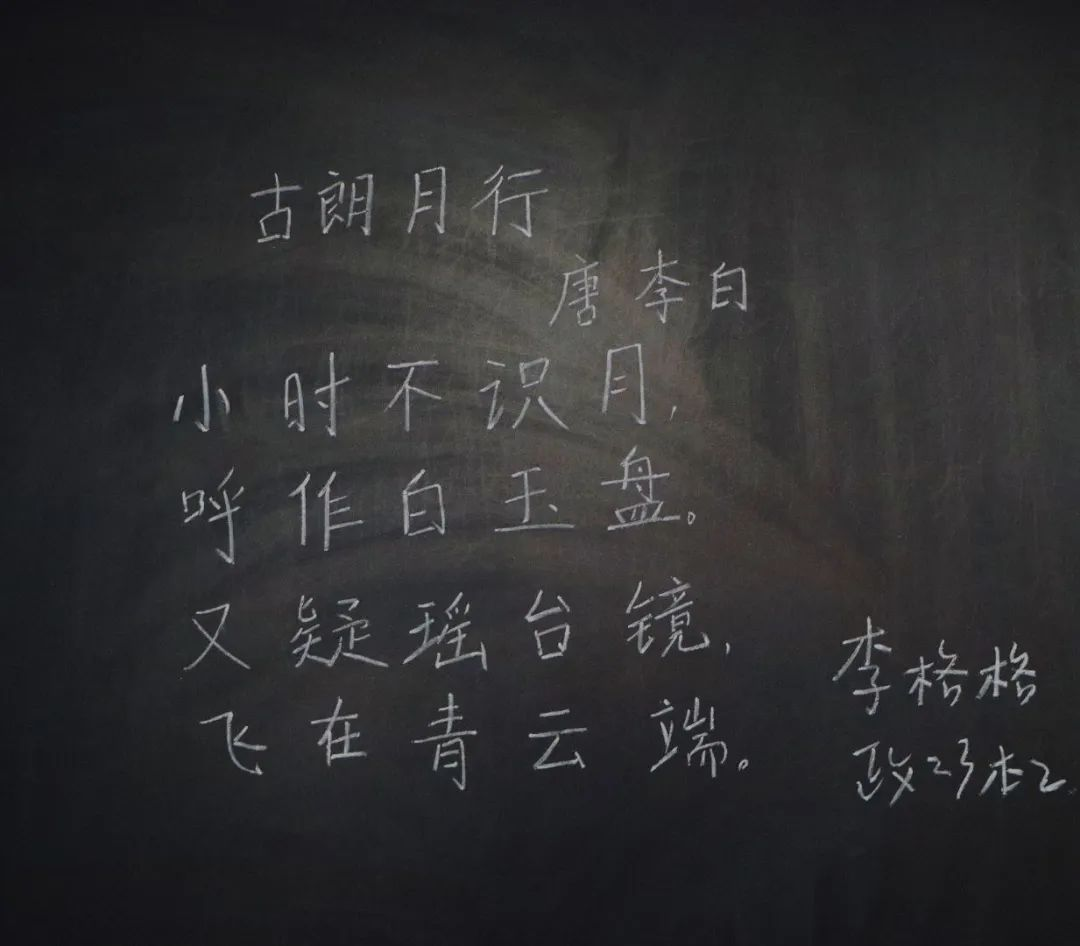 古朗月行
唐 李白
小时不识月,
呼作白玉盘。
又疑瑶台镜,
飞在青云端。
李格格
政23本2